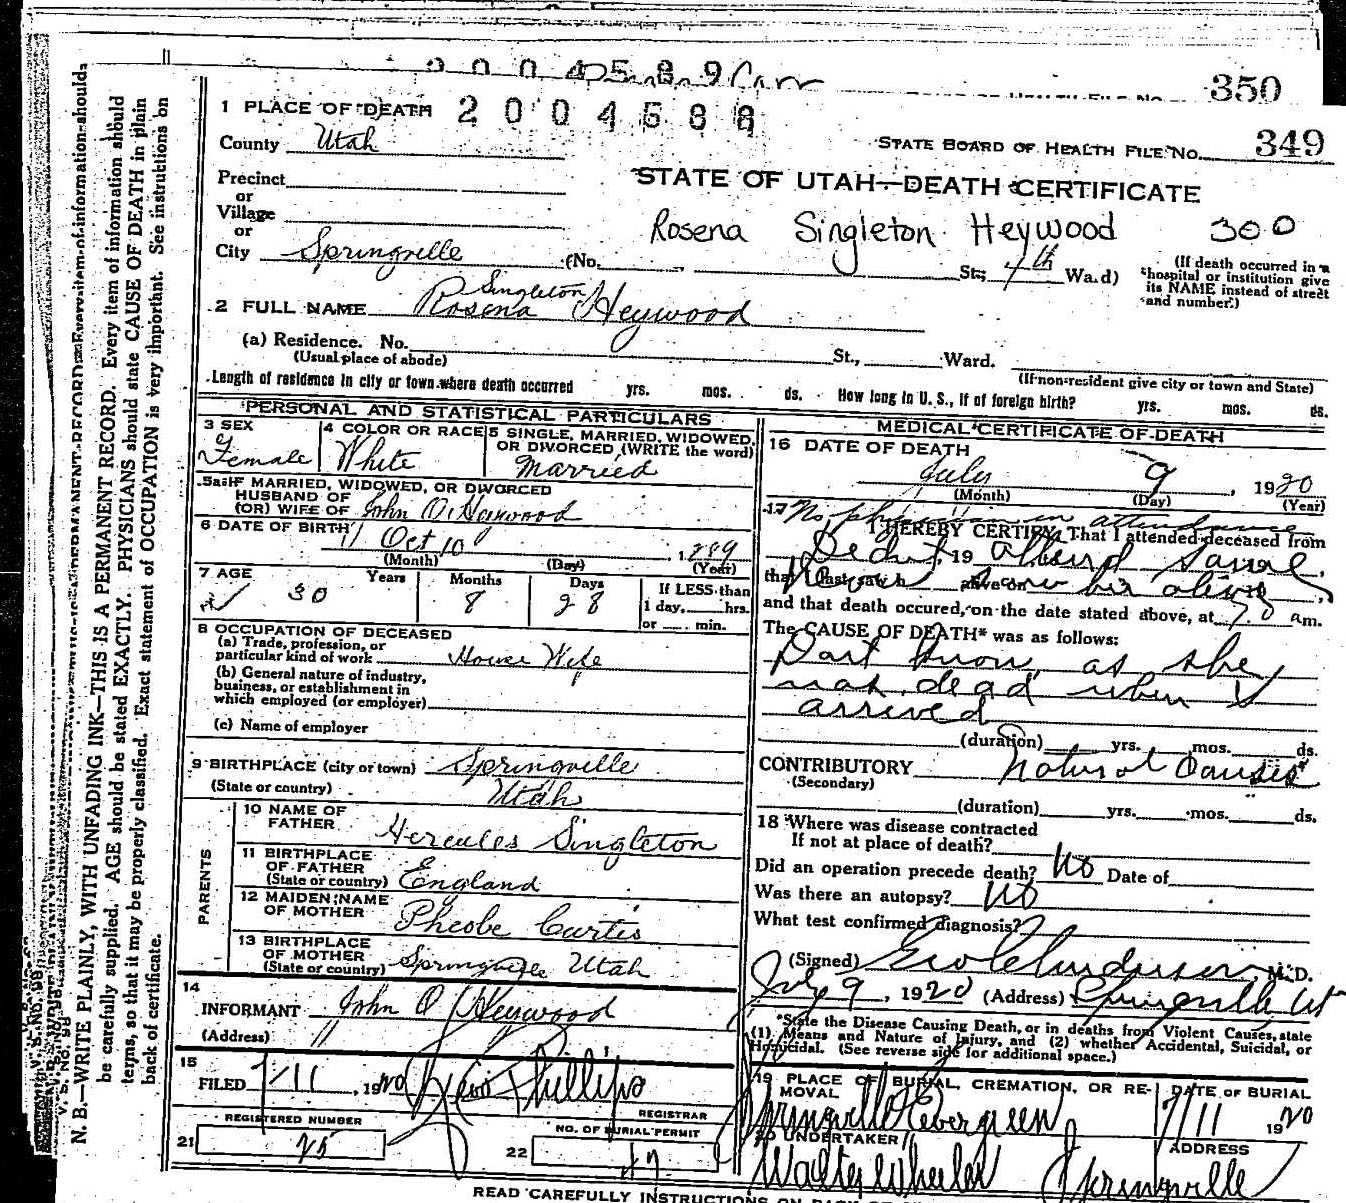 350
1 PLACE OF DEATH 2004588
STATE BOARD OF HEALTH FILE No. 349
County Utah
STATE OF UTAH—DEATH CERTIFICATE
Precinct
or
Village
Rosena Singleton Heywood 300
or
City Springville (No. St; 4th Ward)
(If death occurred in a hospital or institution give its NAME instead of street and number.)
2 FULL NAME Rosena Singleton Heywood
(a) Residence. No. St., Ward.
(Usual place of abode) (If non-resident give city or town and State)
Length of residence in city or town where death occurred yrs. mos. ds. How long in U. S., if of foreign birth? yrs. mos. ds.
PERSONAL AND STATISTICAL PARTICULARS
3 SEX Female
4 COLOR OR RACE White
5 SINGLE, MARRIED, WIDOWED, OR DIVORCED (WRITE the word) Married
5a IF MARRIED, WIDOWED, OR DIVORCED
HUSBAND OF
(OR) WIFE OF John O. Haywood
6 DATE OF BIRTH Oct 10, 1889
(Month) (Day) (Year)
7 AGE 30 Years 8 Months 28 Days
If LESS than
1 day, hrs.
or min.
8 OCCUPATION OF DECEASED
(a) Trade, profession, or
particular kind of work House Wife
(b) General nature of industry,
business, or establishment in
which employed (or employer)
(c) Name of employer
9 BIRTHPLACE (city or town) Springville
(State or country) Utah
PARENTS
10 NAME OF
FATHER Hercules Singleton
11 BIRTHPLACE
OF FATHER
(State or country) England
12 MAIDEN NAME
OF MOTHER Pheobe Curtis
13 BIRTHPLACE
OF MOTHER
(State or country) Springville Utah
14
INFORMANT John O. Heywood
(Address) "
15
FILED 7/11, 1920 Phillips
REGISTRAR
REGISTERED NUMBER
21 25
NO. OF BURIAL PERMIT
22
MEDICAL CERTIFICATE OF DEATH
16 DATE OF DEATH
July 9, 1920
(Month) (Day) (Year)
17 No physician in attendance
I HEREBY CERTIFY, That I attended deceased from
Did not, 19 attend
that I last saw h alive on
and that death occured, on the date stated above, at 7.0 am.
The CAUSE OF DEATH* was as follows:
Dont know as she
was dead when I
arrived
(duration) yrs. mos. ds.
CONTRIBUTORY Natural Causes
(Secondary)
(duration) yrs. mos. ds.
18 Where was disease contracted
If not at place of death?
Did an operation precede death? No Date of
Was there an autopsy? No
What test confirmed diagnosis?
(Signed) Geo Anderson, M.D.
July 9, 1920 (Address) Springville Ut
*State the Disease Causing Death, or in deaths from Violent Causes, state
(1) Means and Nature of Injury, and (2) whether Accidental, Suicidal, or
Homicidal. (See reverse side for additional space.)
19 PLACE OF BURIAL, CREMATION, OR REMOVAL
Springville Evergreen
DATE OF BURIAL
7/11 1920
20 UNDERTAKER
Walter Wheeler
ADDRESS
Springville
READ CAREFULLY INSTRUCTIONS ON BACK OF
N. B.—WRITE PLAINLY, WITH UNFADING INK—THIS IS A PERMANENT RECORD. Every item of information should
be carefully supplied. AGE should be stated EXACTLY. PHYSICIANS should state CAUSE OF DEATH in plain
terms, so that it may be properly classified. Exact statement of OCCUPATION is very important. See instructions on
back of certificate.